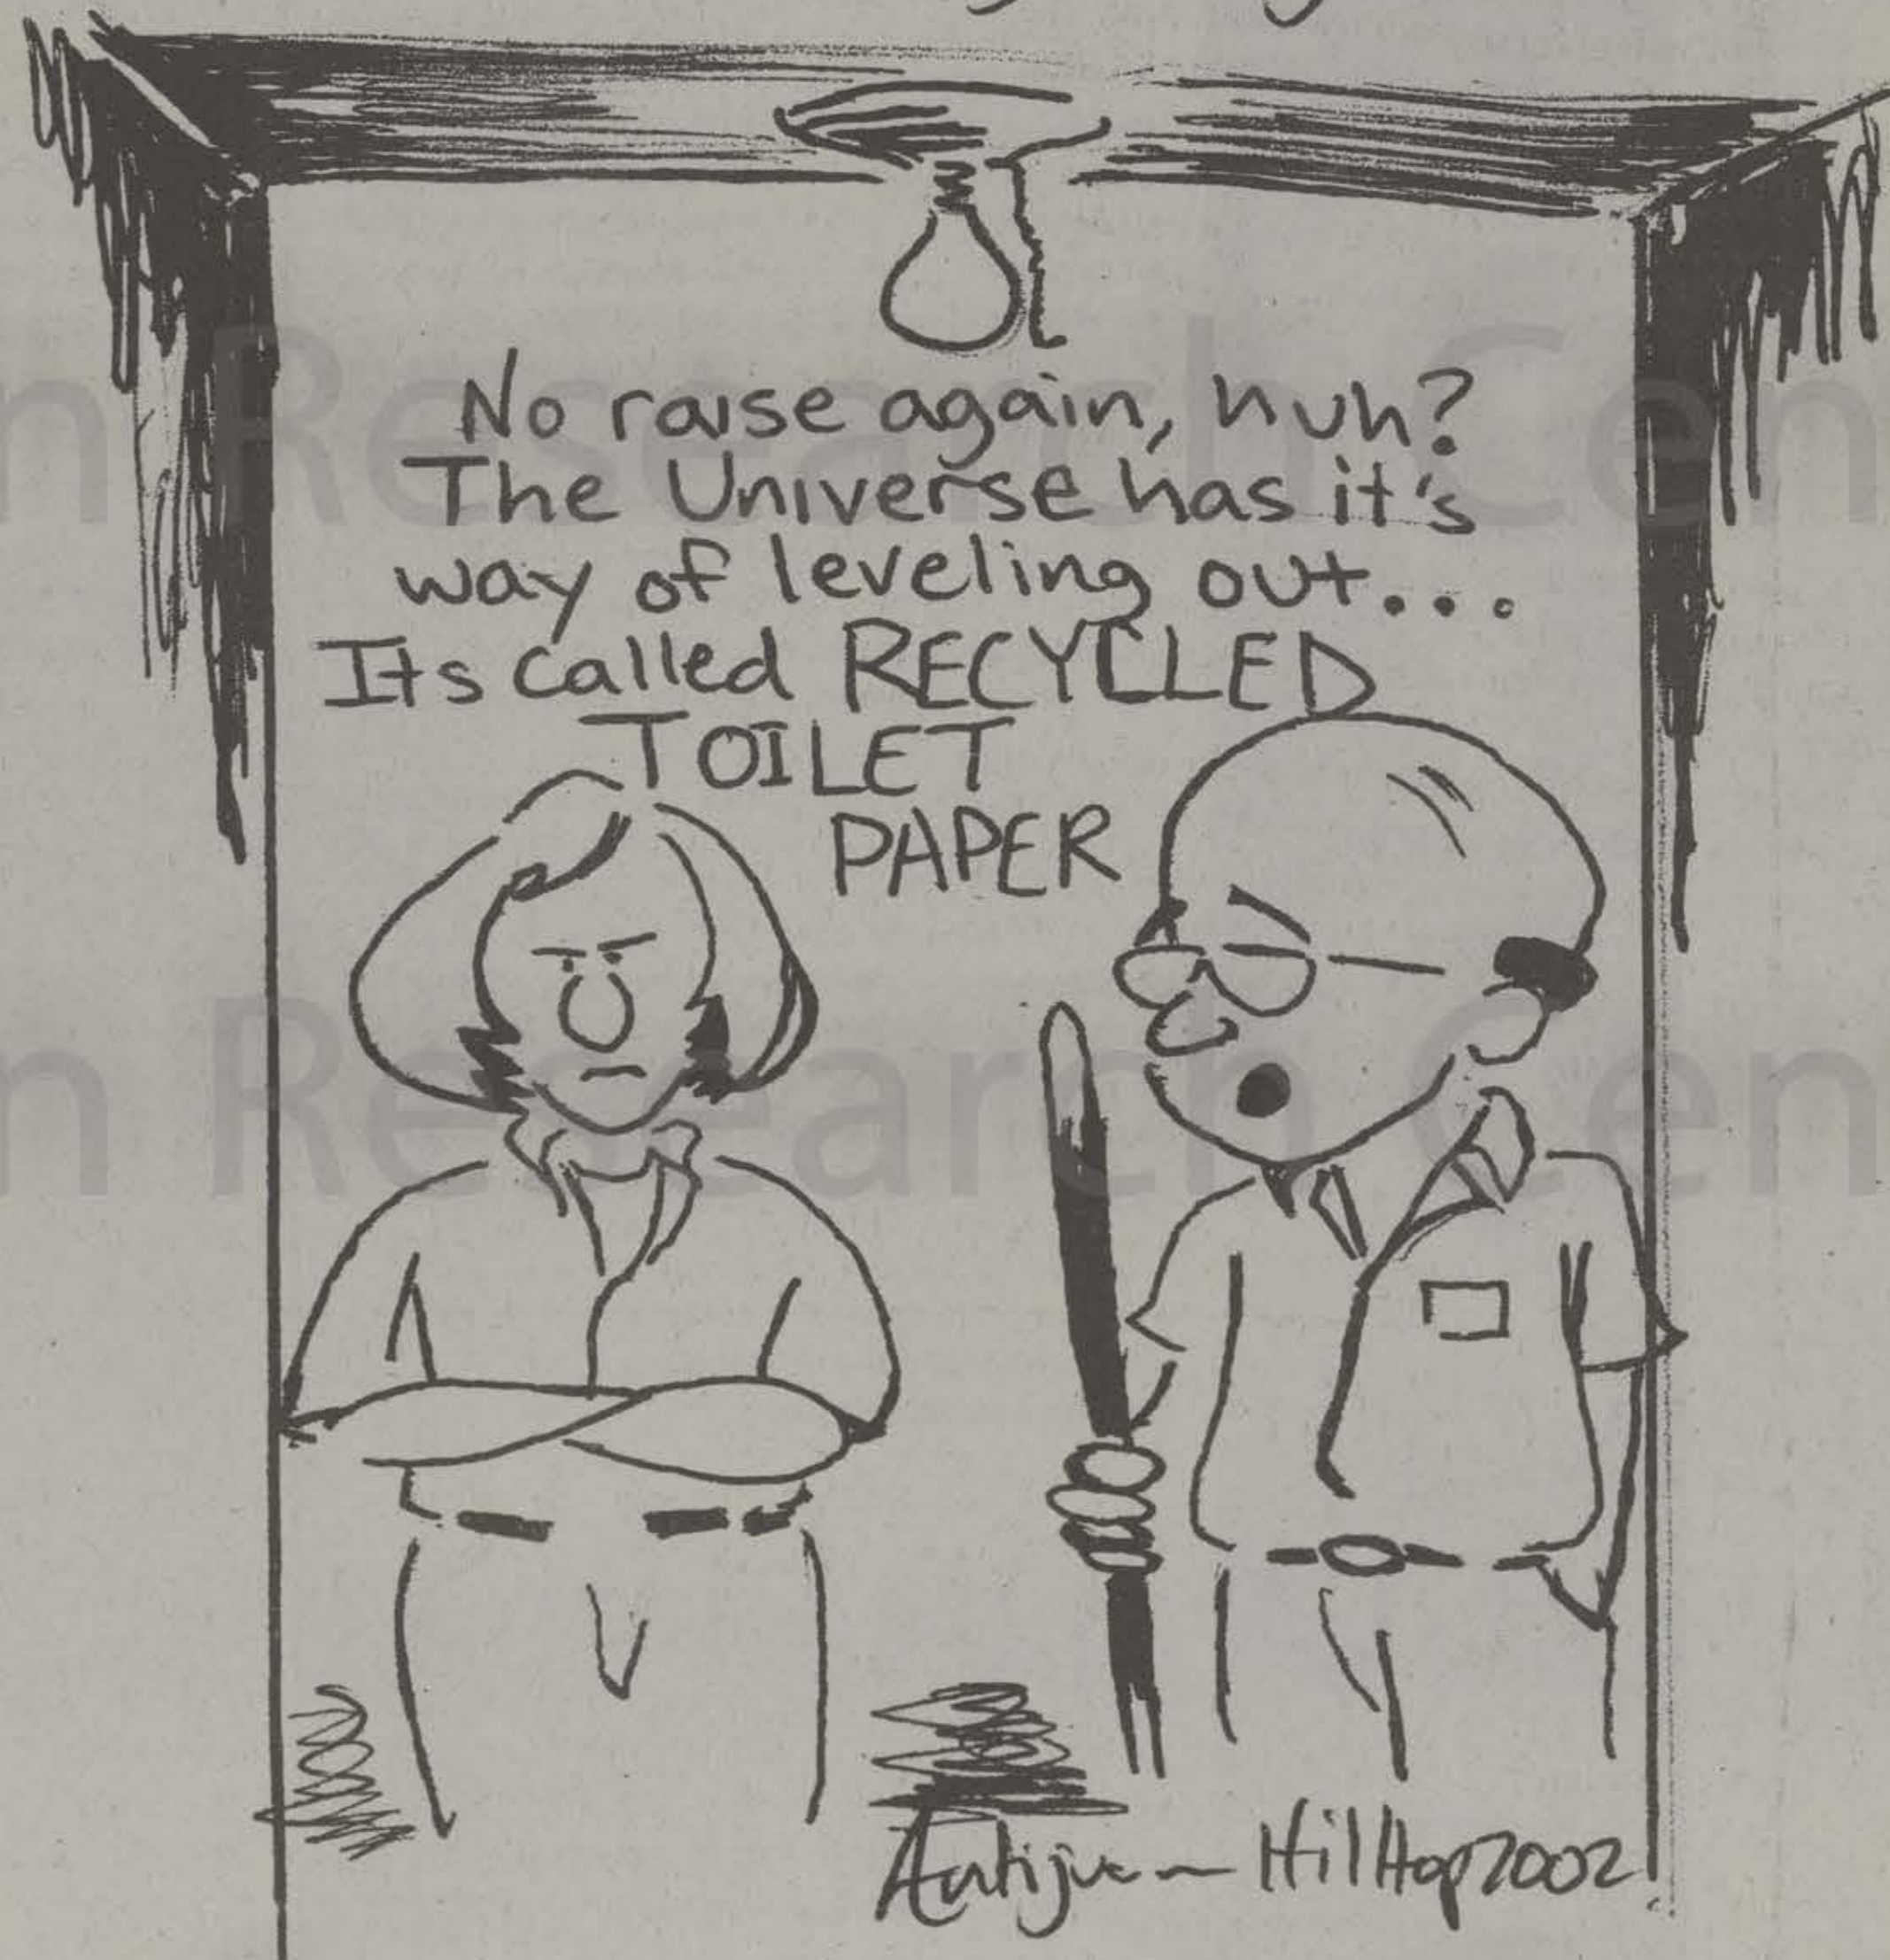 No raise again, huh?
The Universe has it's
way of leveling out...
Its called RECYCLED
TOILET
PAPER
HillTop 2002
n Research Cen
n Research Cen